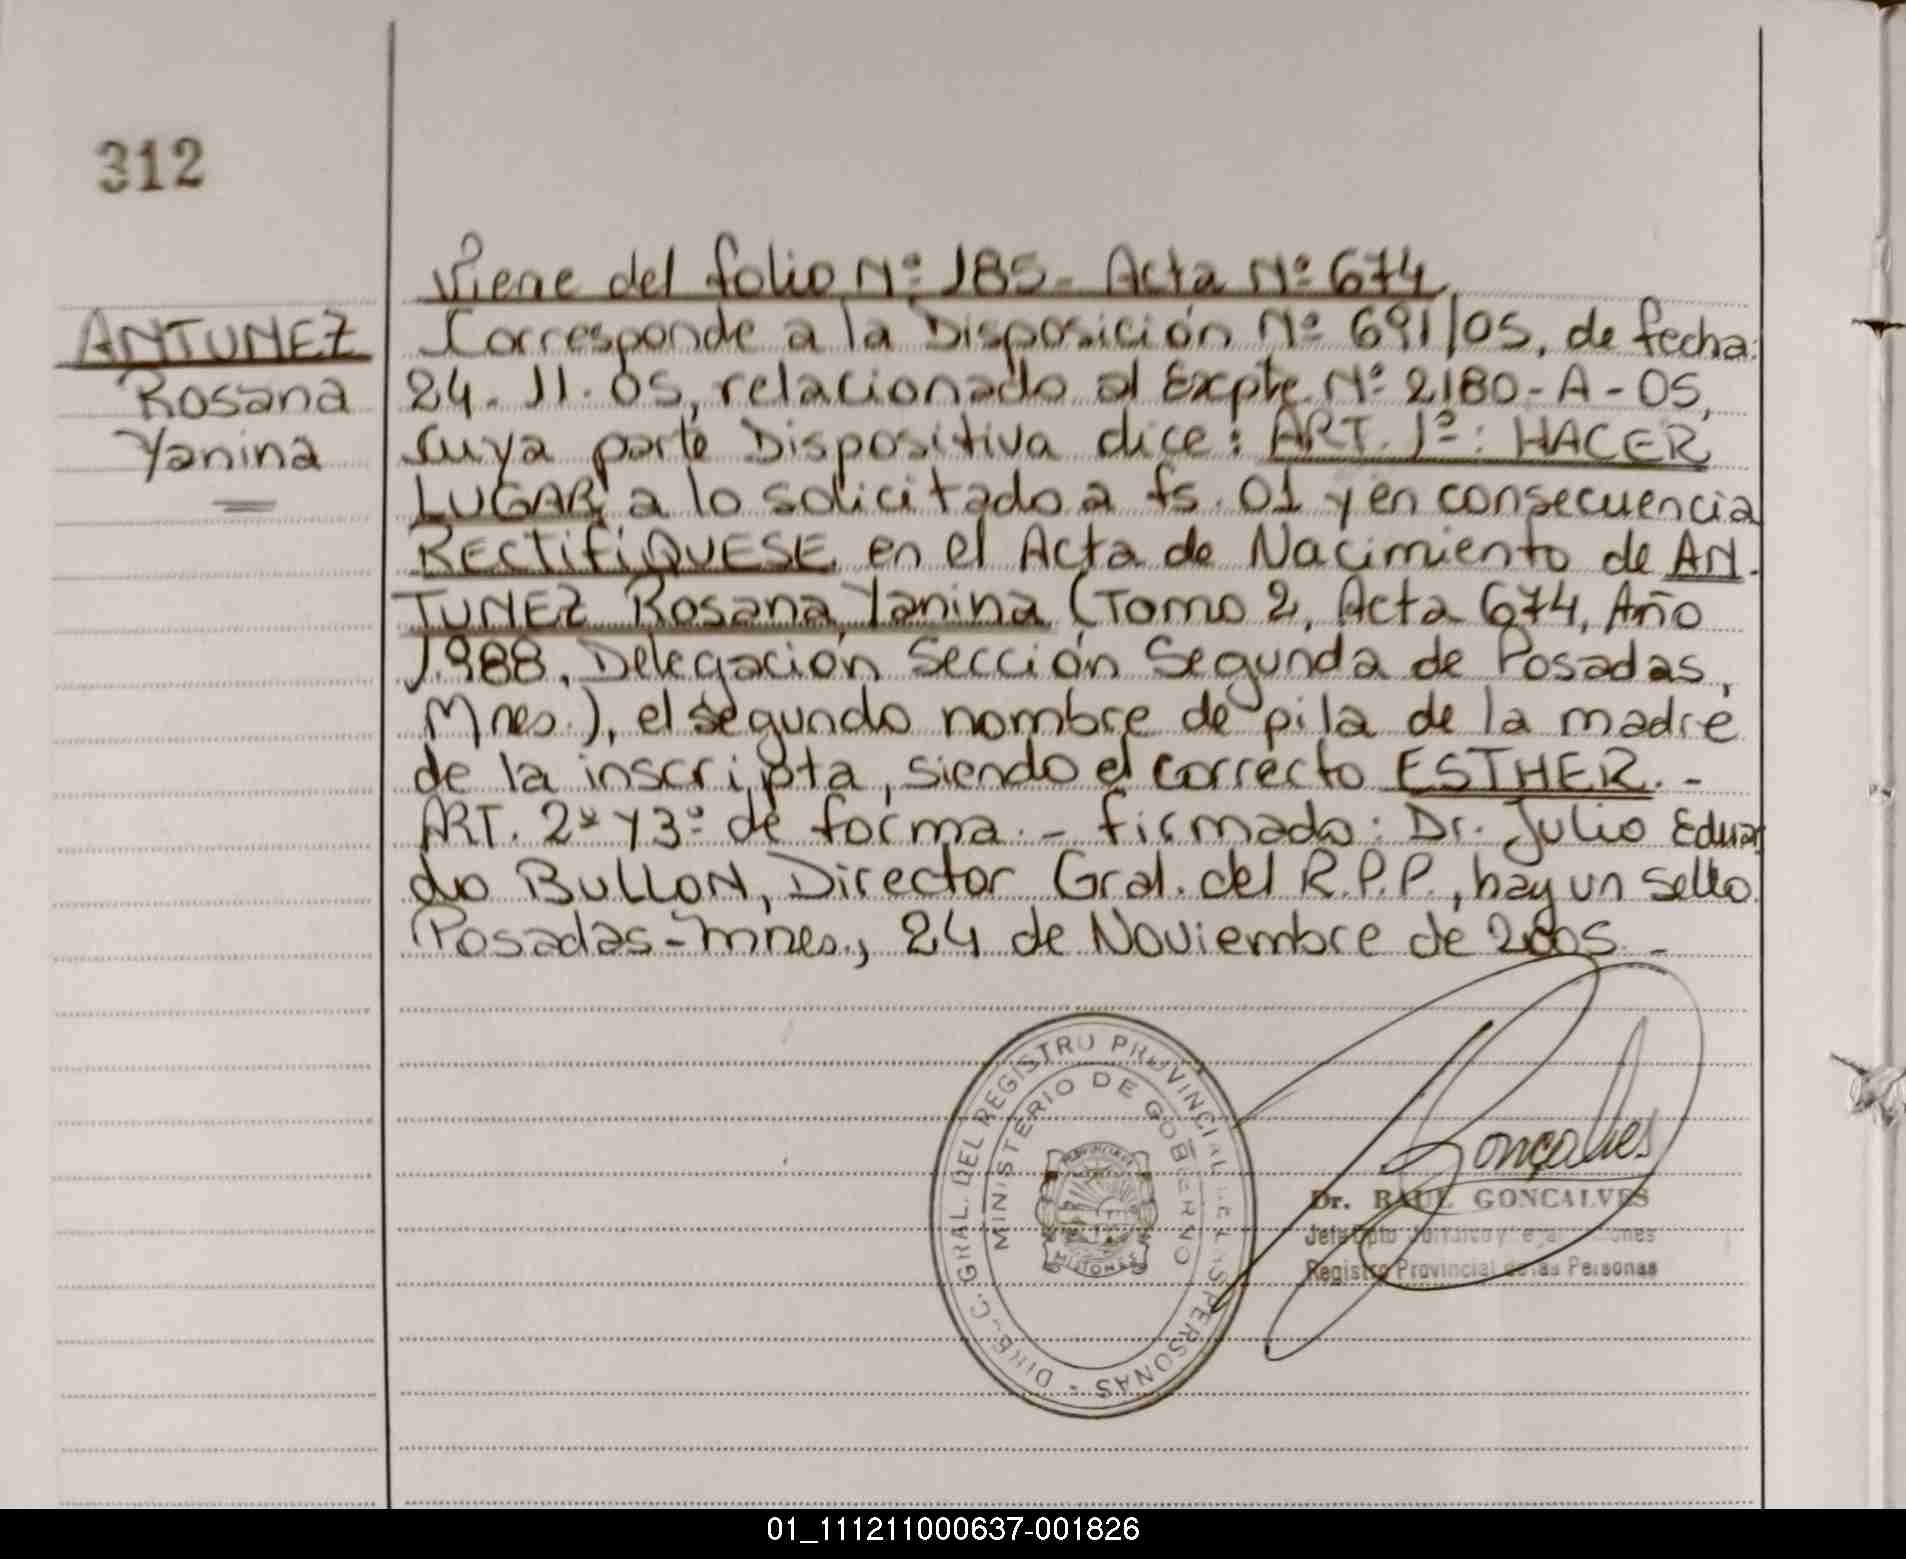 312
ANTUNEZ
Rosana
Yanina
Viene del folio Nº 185 - Acta Nº 674.
Corresponde a la Disposición Nº 691/05, de fecha:
24.11.05, relacionado al Expte. Nº 2180-A-05,
cuya parte Dispositiva dice: ART. 1º: HACER
LUGAR, a lo solicitado a fs. 01 y en consecuencia
RECTIFIQUESE en el Acta de Nacimiento de AN-
TUNEZ Rosana Yanina (Tomo 2, Acta 674, Año
1.988, Delegación Sección Segunda de Posadas,
Mnes.), el segundo nombre de pila de la madre
de la inscripta, siendo el correcto ESTHER. -
ART. 2º y 3º de forma. - firmado: Dr. Julio Eduar
do BULLON, Director Gral. del R.P.P., hay un sello
Posadas - Mnes., 24 de Noviembre de 2005. -
DIREC. GRAL. DEL REGISTRO PROVINCIAL DE LAS PERSONAS -
MINISTERIO DE GOBIERNO
MISIONES
Goncalves
Dr. RAUL GONCALVES
Jefe Dpto Jurídico y
Registro Provincial de las Personas
01_111211000637-001826